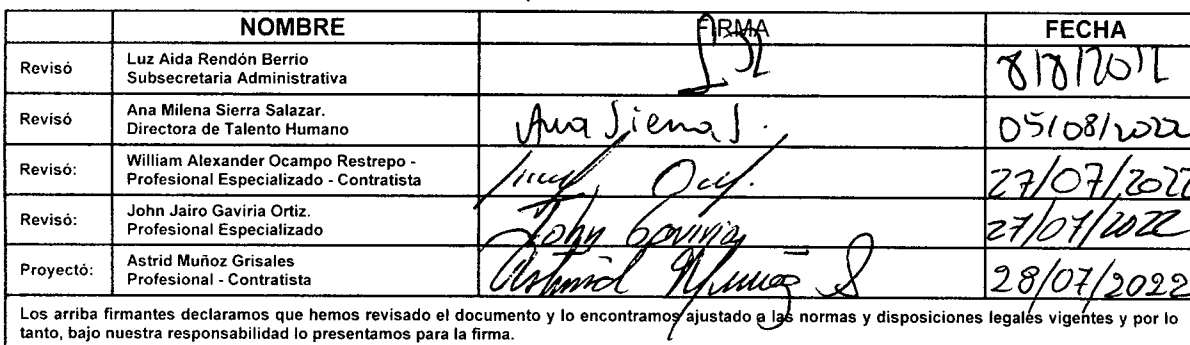 NOMBRE FIRMA FECHA
Revisó Luz Aida Rendón Berrio
Subsecretaria Administrativa 8/8/2022
Revisó Ana Milena Sierra Salazar.
Directora de Talento Humano Ana Sierra S. 05/08/2022
Revisó: William Alexander Ocampo Restrepo -
Profesional Especializado - Contratista 27/07/2022
Revisó: John Jairo Gaviria Ortiz.
Profesional Especializado John Gaviria 27/07/2022
Proyectó: Astrid Muñoz Grisales
Profesional - Contratista Astrid Muñoz G 28/07/2022
Los arriba firmantes declaramos que hemos revisado el documento y lo encontramos ajustado a las normas y disposiciones legales vigentes y por lo
tanto, bajo nuestra responsabilidad lo presentamos para la firma.